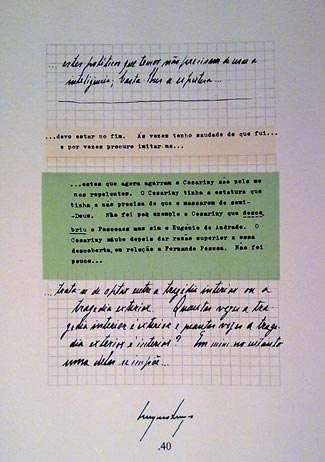 ...estes políticos que temos não precisam de usar a
inteligência; basta-lhes a esperteza...
...devo estar no fim. Às vezes tenho saudade de que fui...
e por vezes procuro imitar-me...
...estes que agora agarram o Cesariny são pelo me
nos repelentes. O Cesariny tinha a estatura que
tinha e não precisa de que o mascarem de semi-
-Deus. Não foi por exemplo o Cesariny que desco
briu o Pascoaes mas sim o Eugénio de Andrade. O
Cesariny soube depois dar razão superior a essa
descoberta, em relação a Fernando Pessoa. Não foi
pouco...
...trata-se de optar entre a tragédia interior ou a
tragédia exterior. Quantas vezes a tra-
gédia interior é exterior e quantas vezes a tragé-
dia exterior é interior? Em mim no entanto
uma delas se impõe...
.40